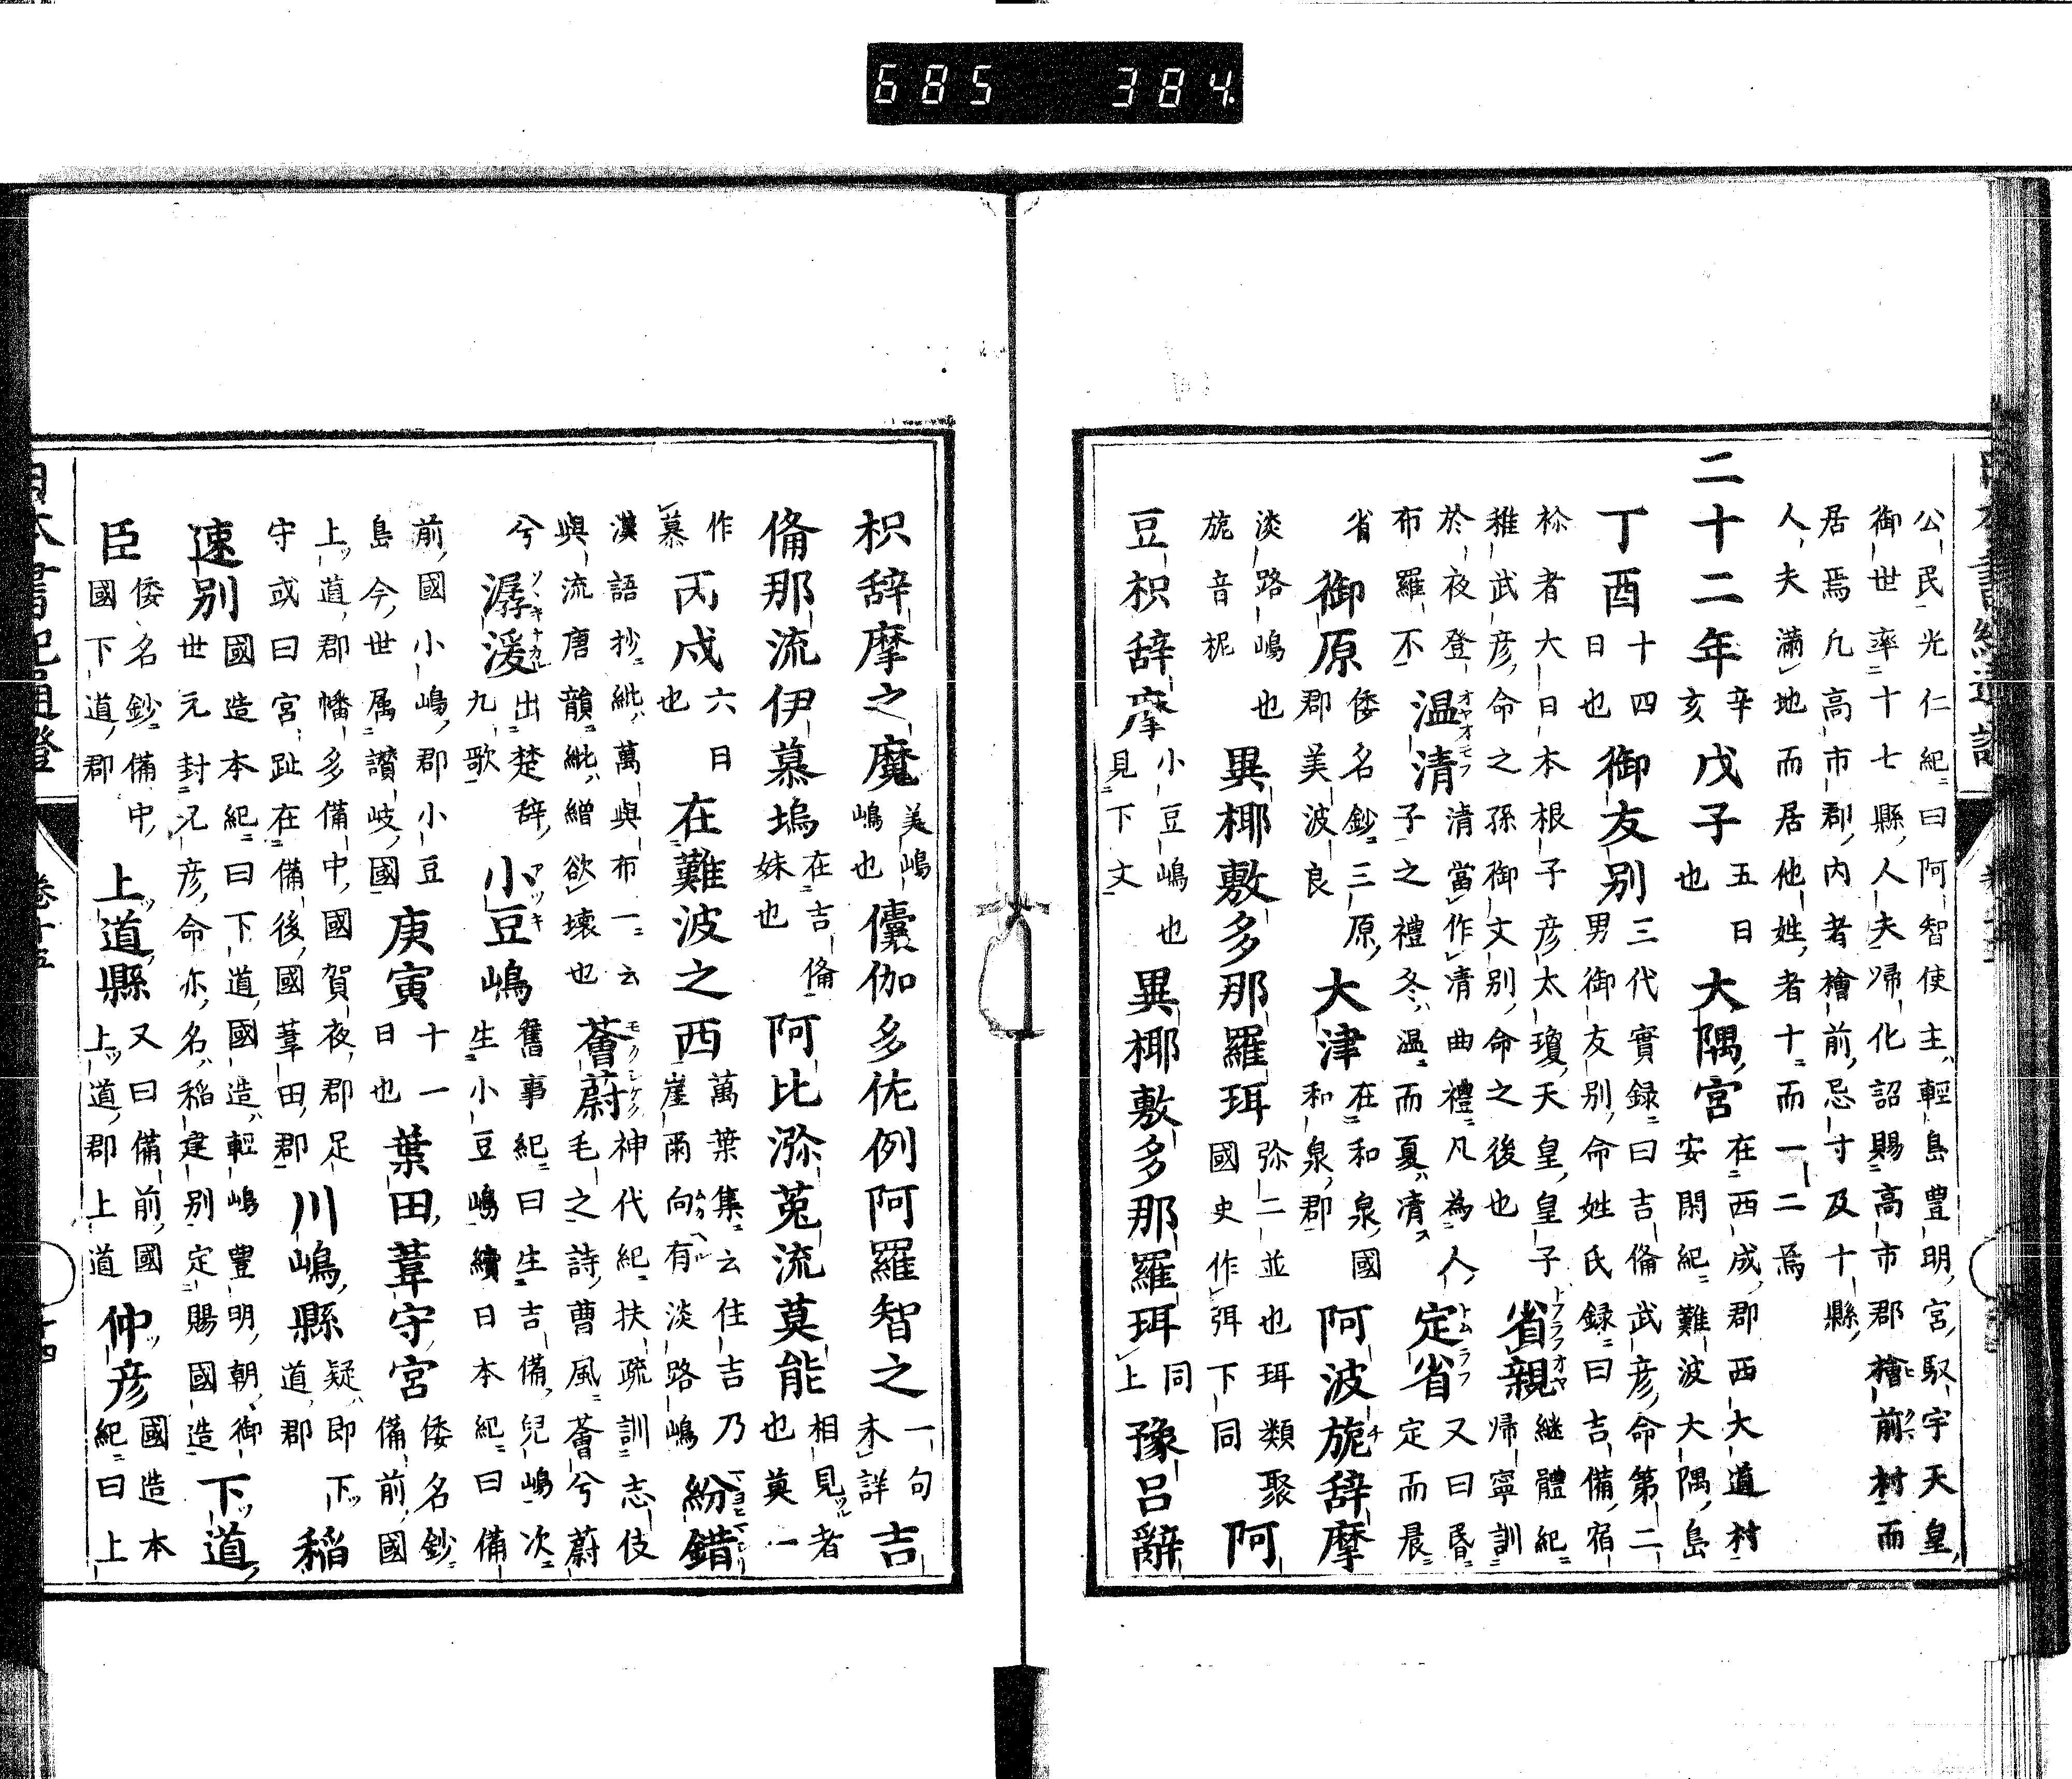 685 384
公民光仁紀曰阿智使主輕島豊明宮馭宇天皇
御世率十七縣人夫帰化詔賜高市郡檜前村而
居焉凡高市郡内者檜前忌寸及十縣
人夫滿地而居他姓者十而一二焉
二十二年 辛亥 戊子 五日也 大隅宮 在西成郡西大道村安閑紀難波大隅島
丁酉 十四日也 御友別 三代實録曰吉備武彦命第二男御友別命姓氏録曰吉備宿
祢者大日本根子彦太瓊天皇皇子稚武彦命之孫御文別命之後也 省親 トフラフオヤ 継體紀帰寧訓
於夜登布羅不 温清 オヤオモフ 清當作凊曲禮凡為人子之禮冬温而夏凊 定省 トムラフ 又曰昏定而晨
省 御原 倭名鈔三原郡美波良 大津 在和泉國和泉郡 阿波旎辞摩
淡路嶋也旎音柅 異椰敷多那羅珥 弥二並也珥類聚國史作弭下同 阿
豆枳辞摩 小豆嶋也見下文 異椰敷多那羅珥 同上 豫呂辭
枳辞摩之魔 美嶋嶋也 儾伽多佐例阿羅智之 一句未詳 吉
備那流伊慕塢 在吉備妹也 阿比瀰菟流莫能 相見者也莫一
作慕 丙戍 六日也 在難波之西 萬葉集云住吉乃崖尓向有淡路嶋 紛錯
漢語抄紕萬與布一云與流唐韻紕繒欲壊也 薈蔚 モクシケク 神代紀扶疏訓志伎毛之詩曹風薈兮蔚
兮 潺湲 出楚辞九歌 小豆嶋 アツキ 舊事紀曰生吉備兒嶋次生小豆嶋續日本紀曰備
前國小嶋郡小豆島今世属讃岐國 庚寅 十一日也 葉田葦守宮 倭名鈔備前國
上道郡幡多備中國賀夜郡足守或曰宮趾在備後國葦田郡 川嶋縣 疑即下道郡 稲
速別 國造本紀曰下道國造輕嶋豊明朝御世元封兄彦命亦名稲建別定賜國造 下道
臣 倭名鈔備中國下道郡 上道縣 又曰備前國上道郡上道 仲彦 國造本紀曰上
日本書紀通證 卷十五